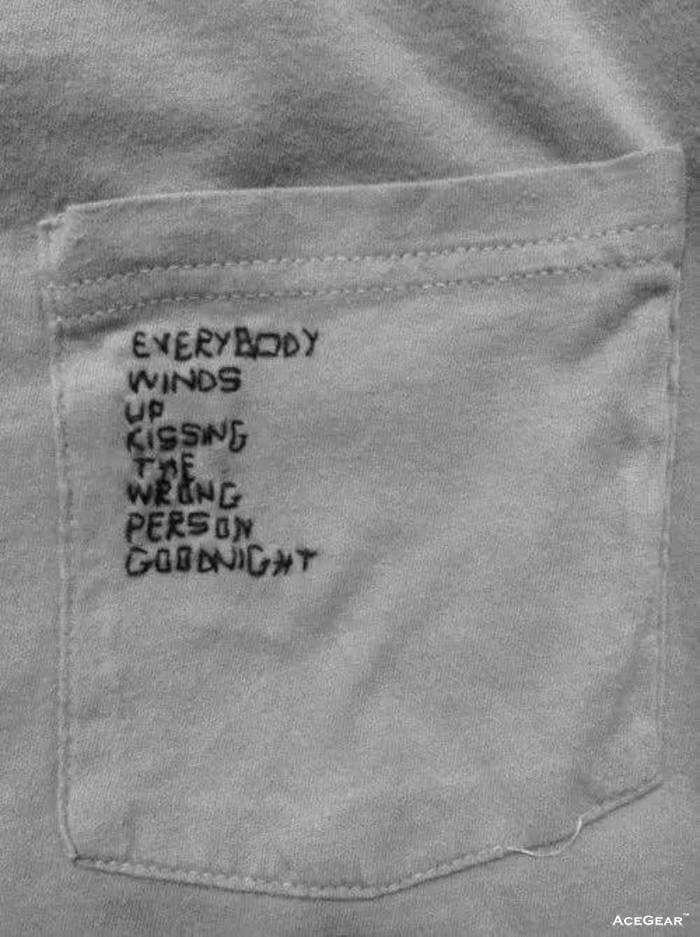 EVERYBODY
WINDS
UP
KISSING
THE
WRONG
PERSON
GOODNIGHT
ACEGEAR™